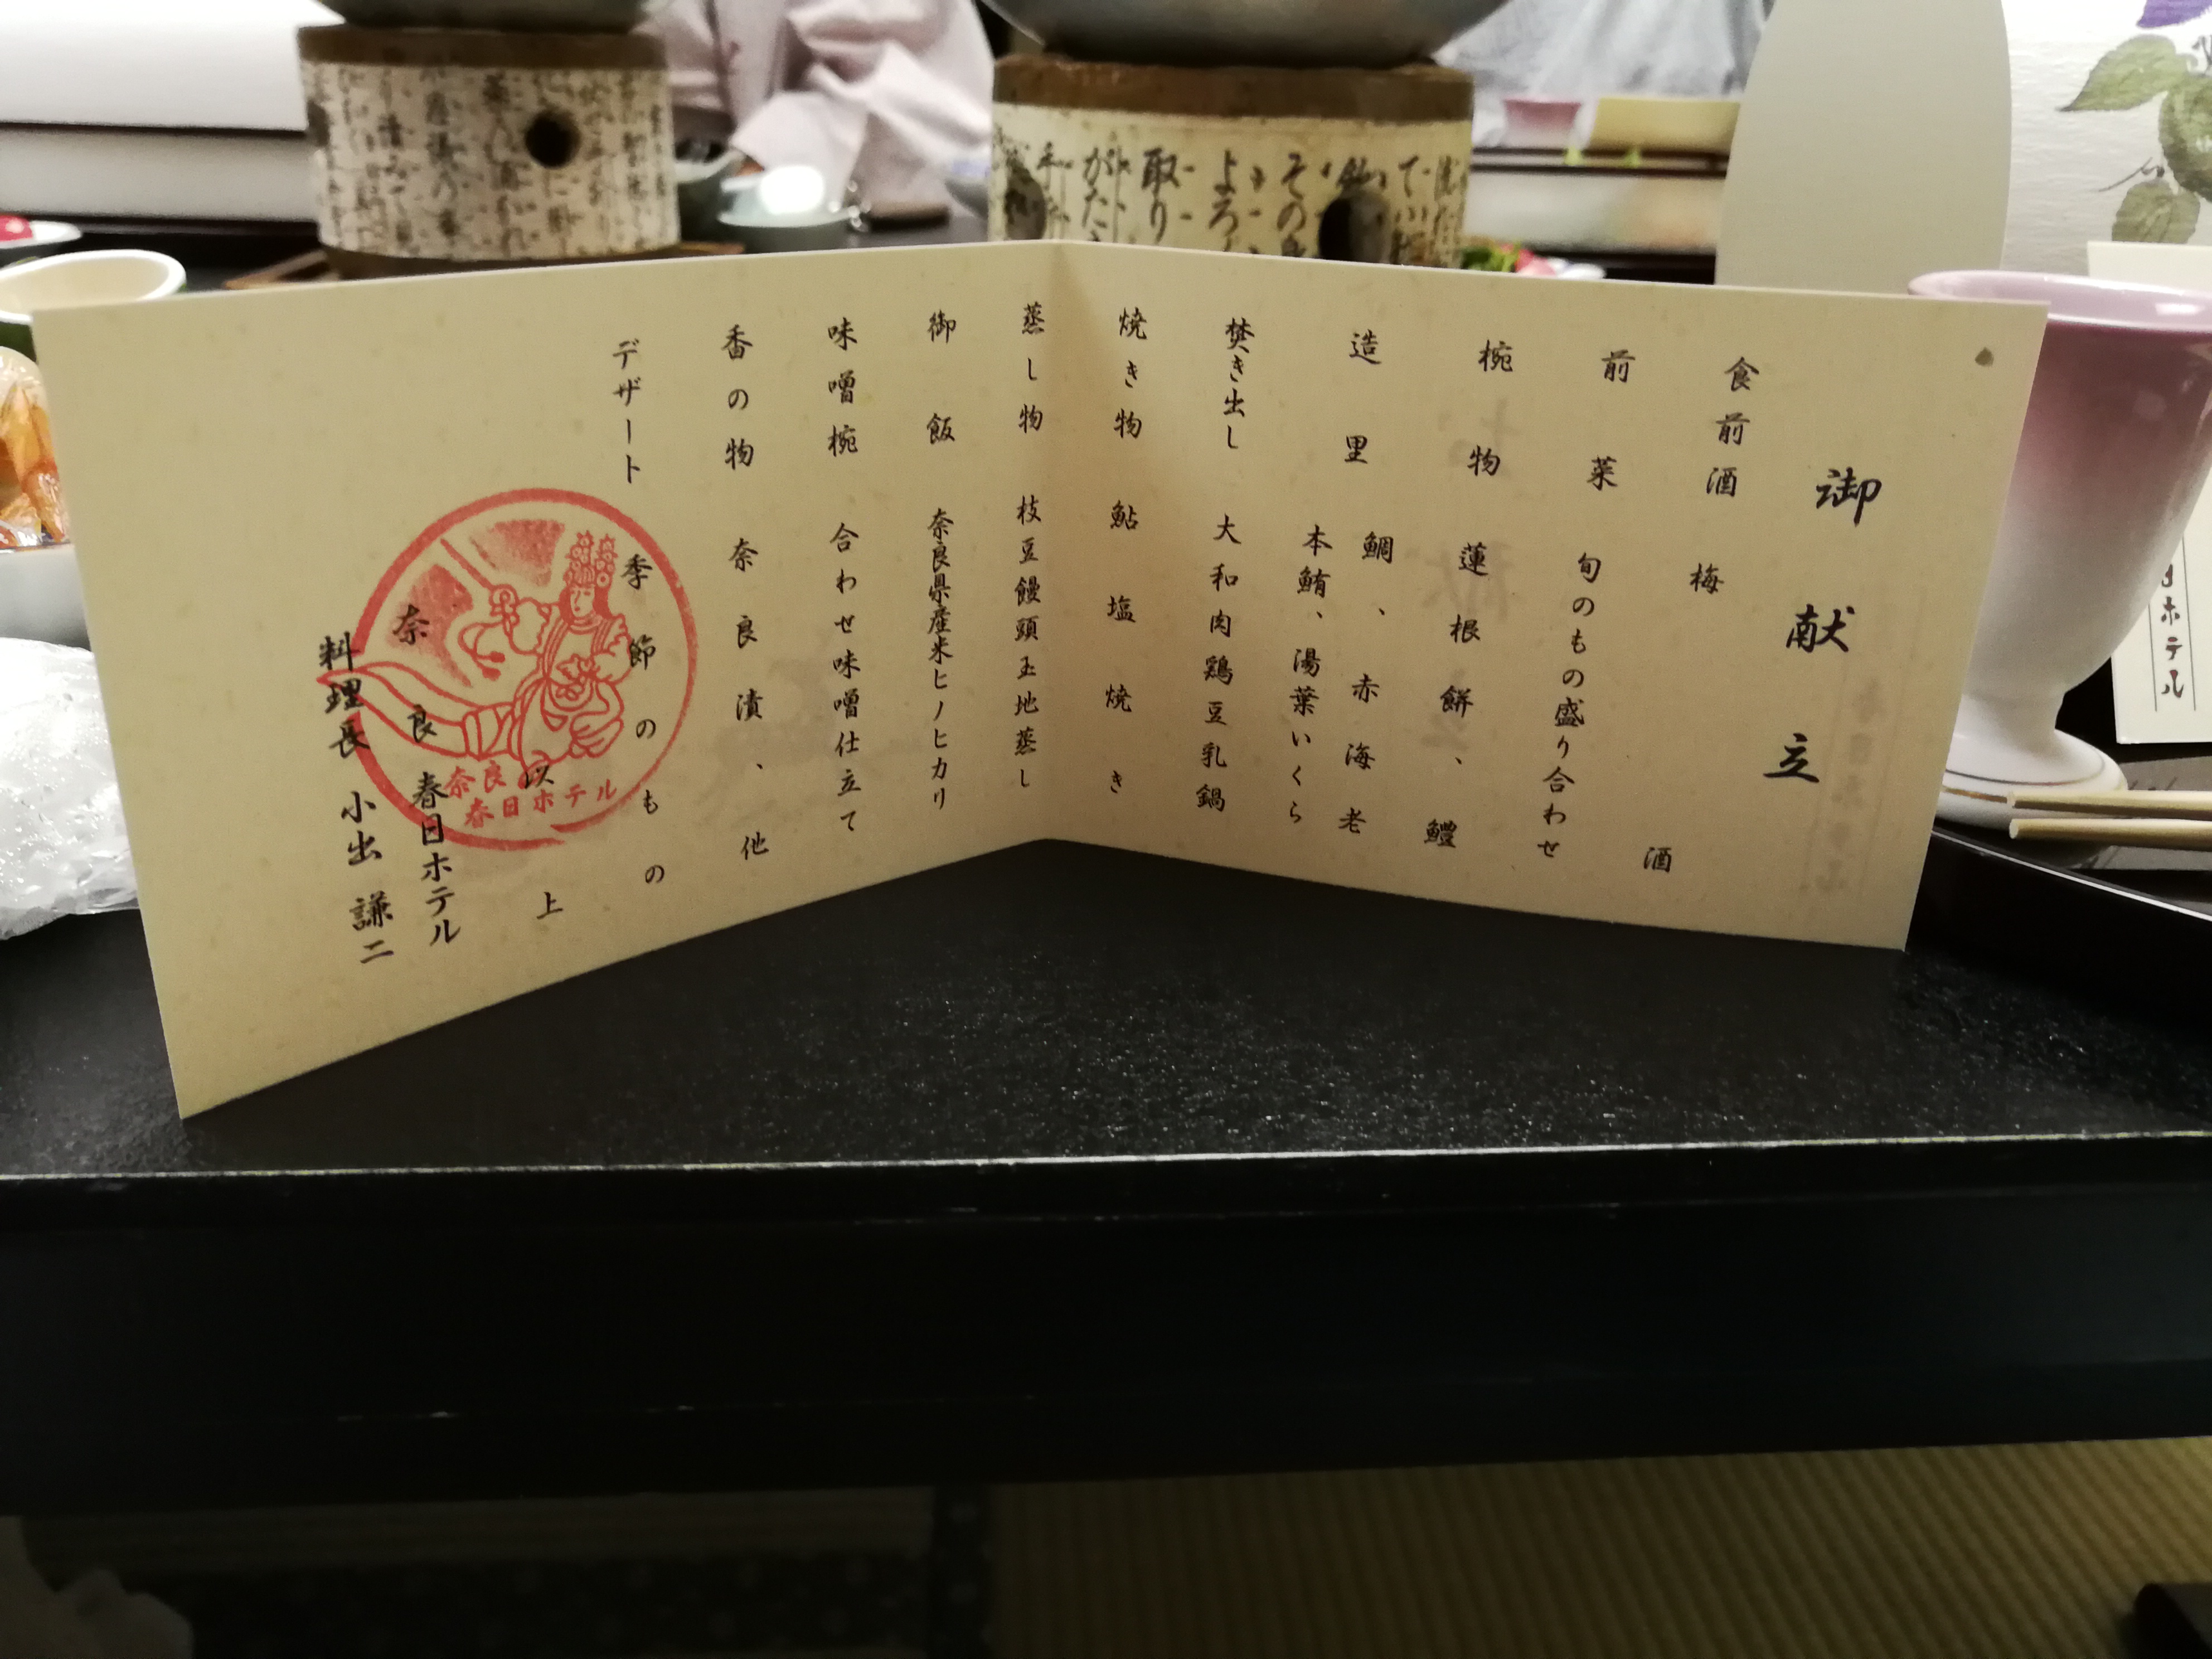 御献立
食前酒 梅酒
前菜 旬のもの盛り合わせ
椀物 蓮根餅、鱧
造里 鯛、赤海老
本鮪、湯葉いくら
焚き出し 大和肉鶏豆乳鍋
焼き物 鮎塩焼き
蒸し物 枝豆饅頭玉地蒸し
御飯 奈良県産米ヒノヒカリ
味噌椀 合わせ味噌仕立て
香の物 奈良漬、他
デザート 季節のもの
以上
奈良 春日ホテル
料理長 小出 謙二
奈良
春日ホテル
日ホテル
取り
その